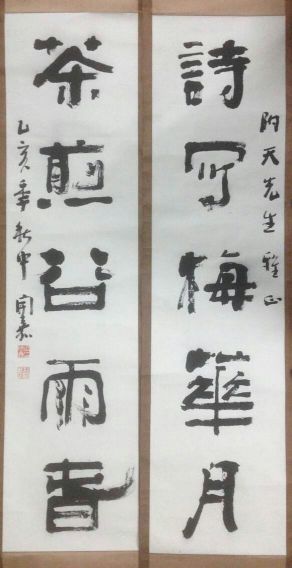 天先生雅正
詩写梅華月
茶煎谷雨春
乙亥年秋中